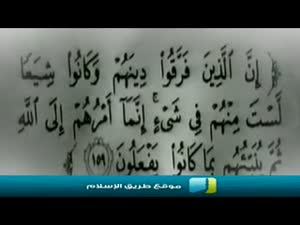 ﴿ إِنَّ ٱلَّذِينَ فَرَّقُوا۟ دِينَهُمْ وَكَانُوا۟ شِيَعًا
لَّسْتَ مِنْهُمْ فِى شَىْءٍ ۚ إِنَّمَآ أَمْرُهُمْ إِلَى ٱللَّهِ
ثُمَّ يُنَبِّئُهُم بِمَا كَانُوا۟ يَفْعَلُونَ ﴿١٥٩﴾ ﴾
موقع طريق الإسلام